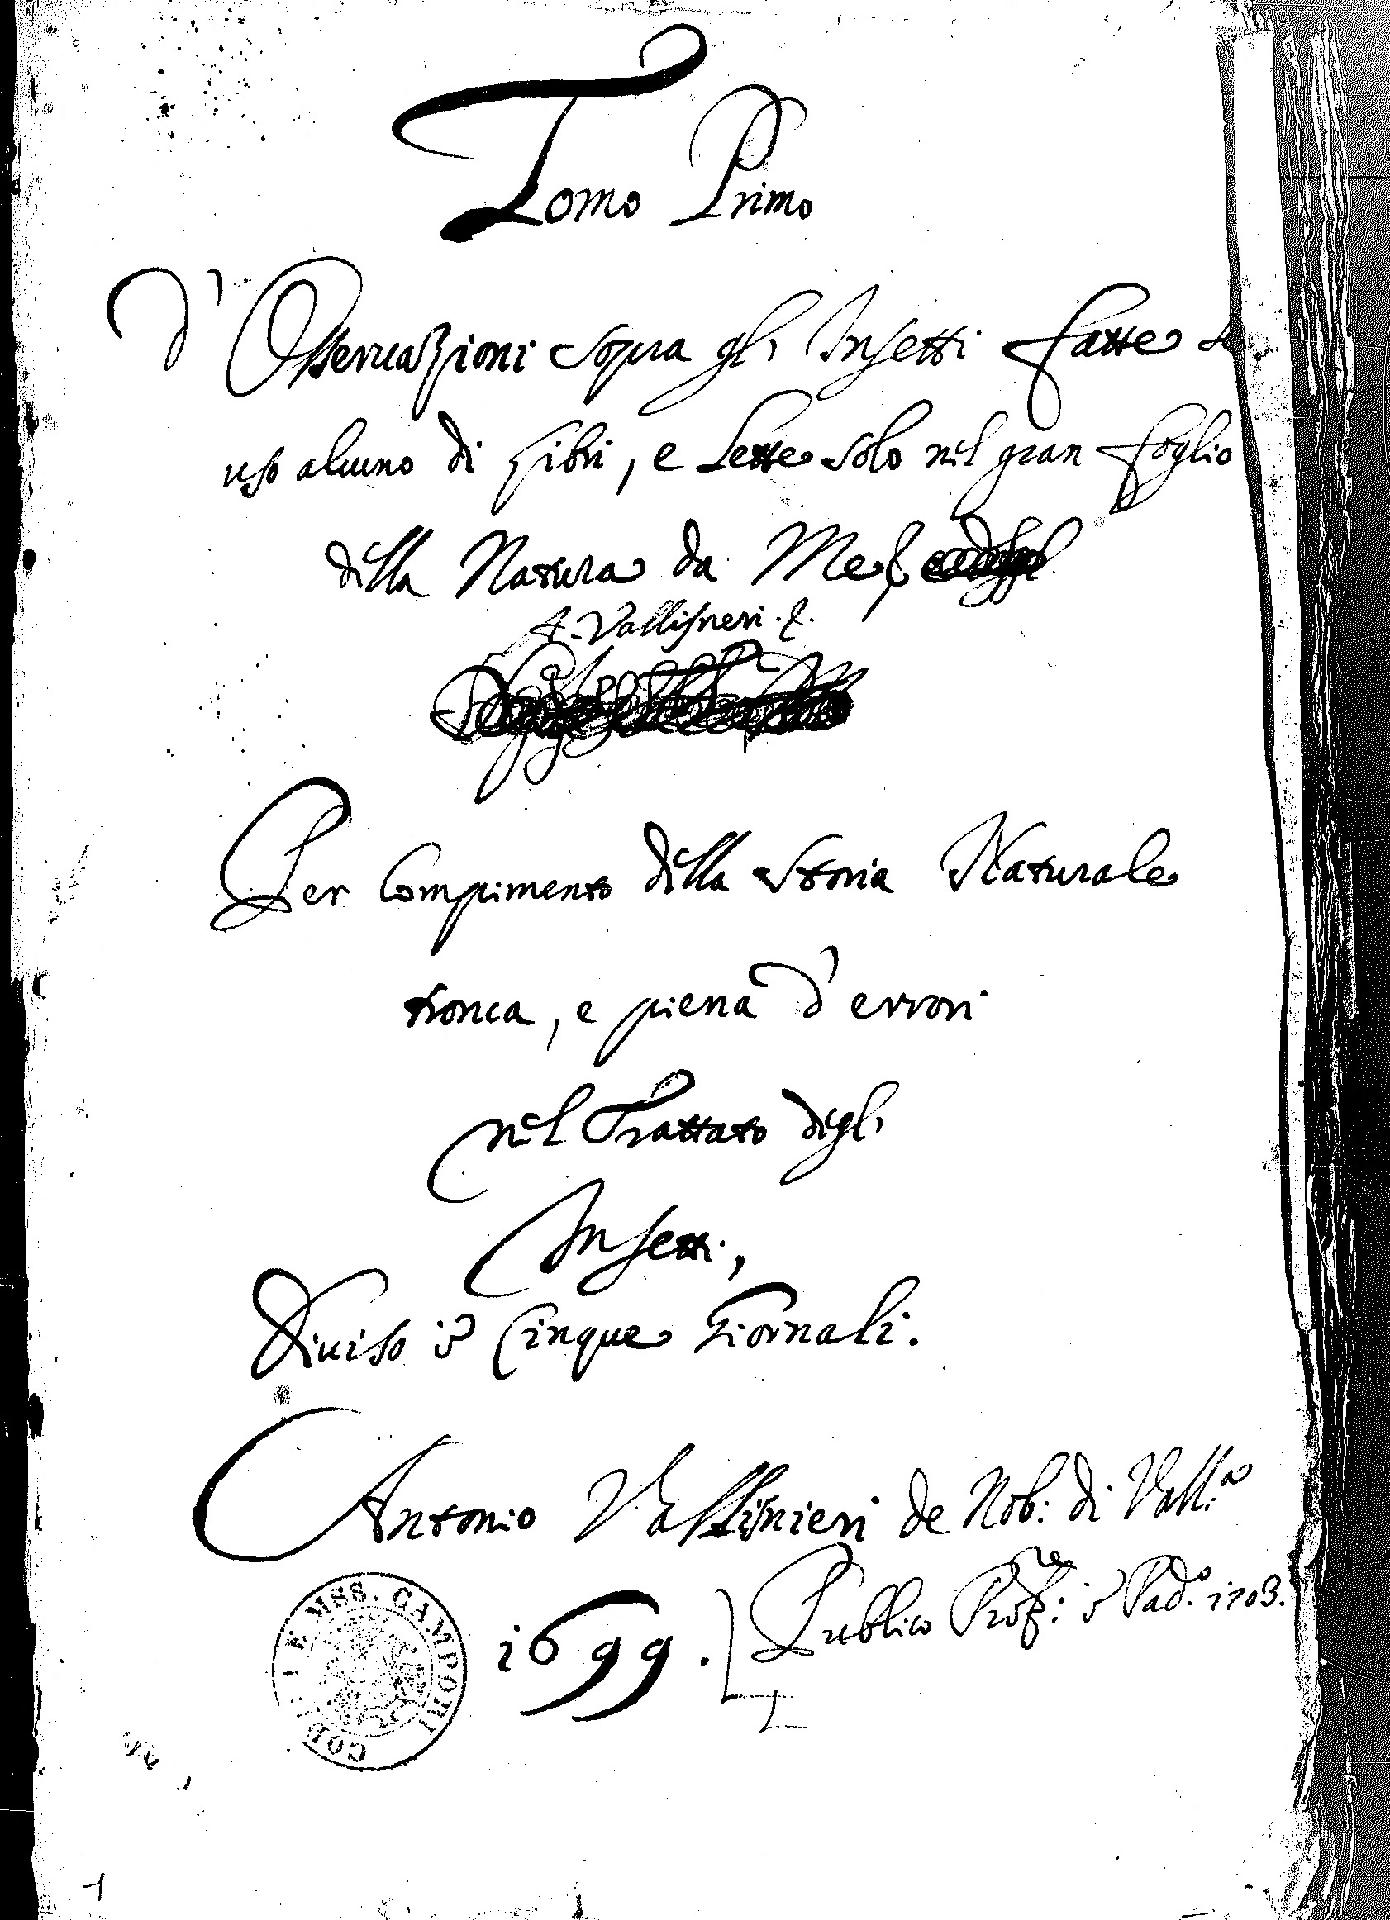 Tomo Primo
d' Osseruazioni sopra gli Insetti fatte
uso alcuno di Libri, e Lette solo nel gran foglio
della Natura da Me
A. Vallisneri
Per Compimento della Storia Naturale
tronca, e piena d'errori
nel Trattato degli
Insetti,
Diuiso ĩ Cinque Giornali.
Antonio Vallisnieri de Nob: di Vall.a
Publico Profre: ĩ Pado. 1703.
1699.
MSS. CAMPORI
1